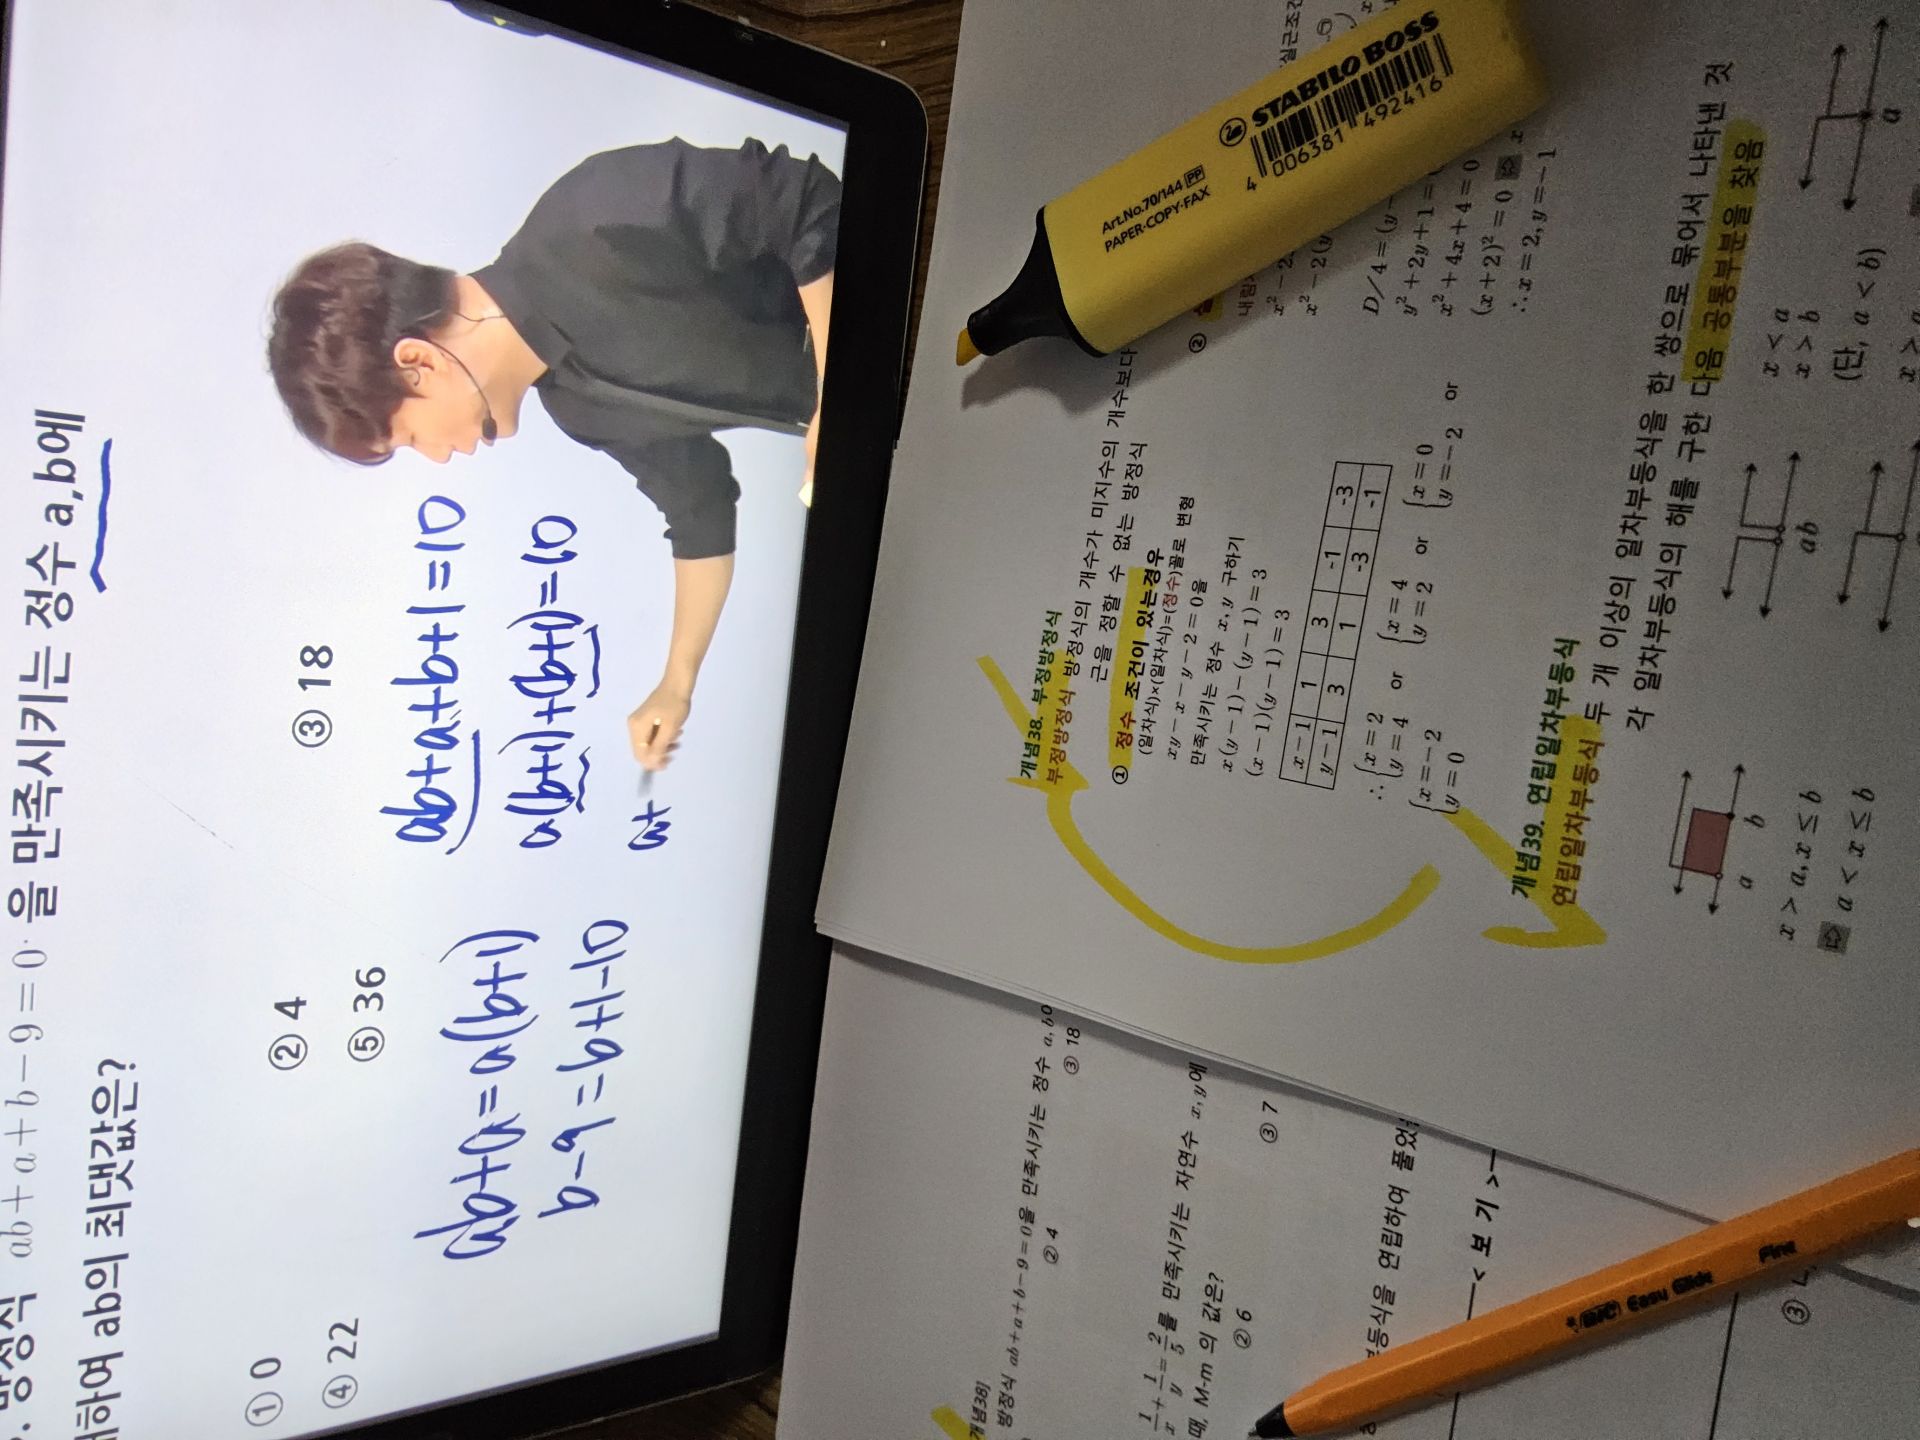 방정식 ab+a+b-9=0 을 만족시키는 정수 a,b에
대하여 ab의 최댓값은?
① 0
② 4
③ 18
④ 22
⑤ 36
ab+a=a(b+1)
b-9=b+1-10
ab+a+b+1=10
a(b+1)+(b+1)=10
a+
개념38]
방정식 ab+a+b-9=0을 만족시키는 정수 a, b
② 4
③ 18
1/x+1/y=2/5를 만족시키는 자연수 x, y에
때, M-m 의 값은?
② 6
③ 7
부등식을 연립하여 풀었
< 보 기 >
③
개념38. 부정방정식
부정방정식 방정식의 개수가 미지수의 개수보다
근을 정할 수 없는 방정식
① 정수 조건이 있는경우
(일차식)×(일차식)=(정수)꼴로 변형
xy-x-y-2=0을
만족시키는 정수 x, y 구하기
x(y-1)-(y-1)=3
(x-1)(y-1)=3
x-1 1 3 -1 -3
y-1 3 1 -3 -1
∴ {x=2 y=4 or {x=4 y=2 or {x=0 y=-2 or
{x=-2 y=0
②
실근조건
D/4=(y
y²+2y+1=
x²+4x+4=0
(x+2)²=0 ⇨ x
∴ x=2, y=-1
개념39. 연립일차부등식
연립일차부등식 두 개 이상의 일차부등식을 한 쌍으로 묶어서 나타낸 것
각 일차부등식의 해를 구한 다음 공통부분을 찾음
a b
x > a, x ≤ b
⇨ a < x ≤ b
ab
x < a
x > b
(단, a < b)
a
STABILO BOSS
Art.No.70/144 PP
PAPER·COPY·FAX
4 006381 492416
BIC Easy Glide Fine